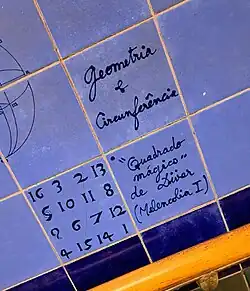 Geometria
e
Circunferência
16 3 2 13
5 10 11 8
9 6 7 12
4 15 14 1
• "Quadrado
mágico"
de Dürer
(Melencolia I)